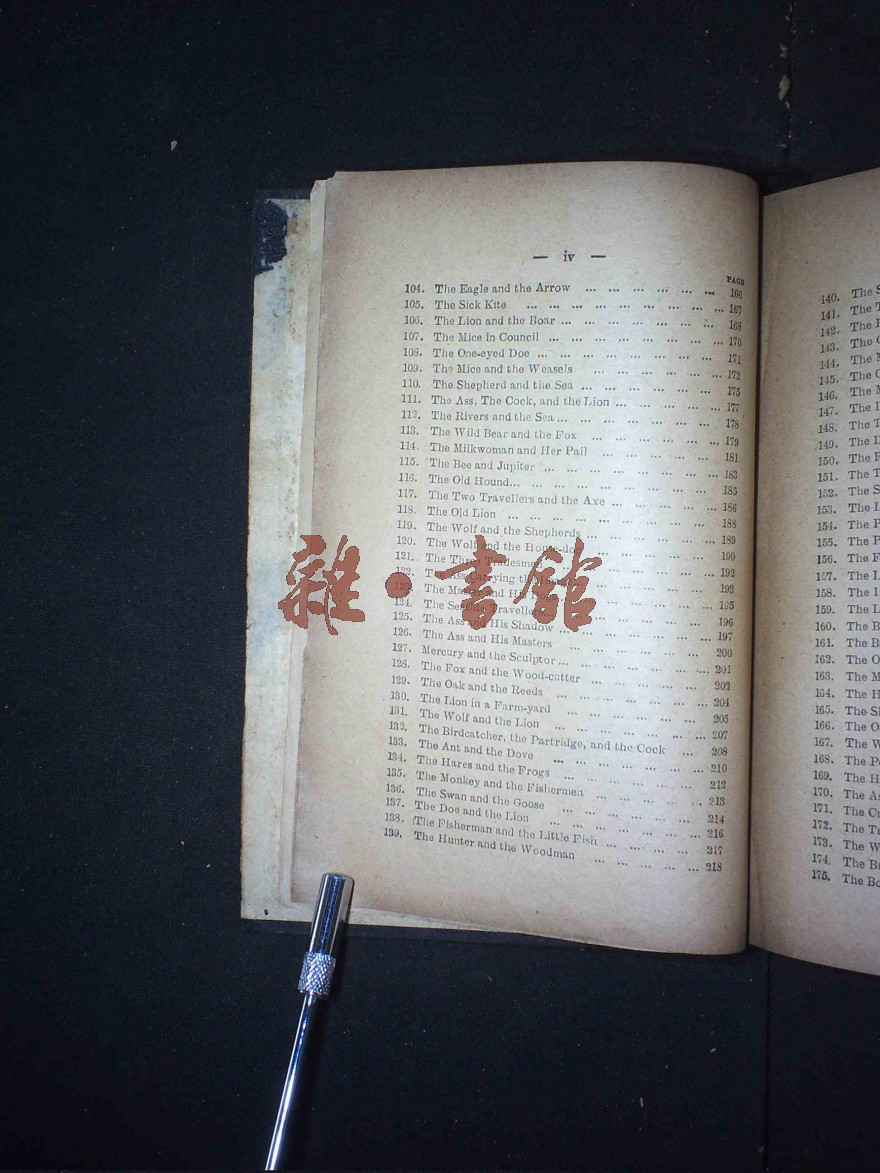 — iv —
PAGE
104. The Eagle and the Arrow ... ... ... ... ... 166
105. The Sick Kite ... ... ... ... ... ... ... ... 167
106. The Lion and the Boar ... ... ... ... ... ... ... 168
107. The Mice in Council ... ... ... ... ... ... ... 170
108. The One-eyed Doe ... ... ... ... ... ... ... ... 171
109. The Mice and the Weasels ... ... ... ... ... ... 172
110. The Shepherd and the Sea ... ... ... ... ... ... 175
111. The Ass, The Cock, and the Lion ... ... ... ... ... 177
112. The Rivers and the Sea ... ... ... ... ... ... ... 178
113. The Wild Bear and the Fox ... ... ... ... ... ... 179
114. The Milkwoman and Her Pail ... ... ... ... ... 181
115. The Bee and Jupiter ... ... ... ... ... ... ... ... 183
116. The Old Hound... ... ... ... ... ... ... ... 185
117. The Two Travellers and the Axe ... ... ... ... ... 186
118. The Old Lion ... ... ... ... ... ... ... ... 188
119. The Wolf and the Shepherds ... ... ... ... ... ... 189
120. The Wolf and the House-dog ... ... ... ... 190
121. The Three Tradesmen ... ... ... ... ... 192
122. The Ass Carrying the ... ... ... ... 193
123. The Master and His ... ... ... ... 195
124. The Seaside Travellers ... ... ... ... 196
125. The Ass and His Shadow ... ... ... ... ... ... 197
126. The Ass and His Masters ... ... ... ... ... ... 200
127. Mercury and the Sculptor ... ... ... ... ... ... ... 201
128. The Fox and the Wood-cutter ... ... ... ... ... 202
129. The Oak and the Reeds ... ... ... ... ... ... ... 204
130. The Lion in a Farm-yard ... ... ... ... ... ... 205
131. The Wolf and the Lion ... ... ... ... ... ... ... 207
132. The Birdcatcher, the Partridge, and the Cock ... 208
133. The Ant and the Dove ... ... ... ... ... ... ... 210
134. The Hares and the Frogs ... ... ... ... ... ... 212
135. The Monkey and the Fishermen ... ... ... ... ... 213
136. The Swan and the Goose ... ... ... ... ... ... 214
137. The Doe and the Lion ... ... ... ... ... ... ... 216
138. The Fisherman and the Little Fish ... ... ... ... ... 217
139. The Hunter and the Woodman ... ... ... ... ... 218
雜·書館
140. The
141. The
142. The
143. The
144. The
145. The
146. The
147. The
148. The
149. The
150. The
151. The
152. The
153. The
154. The
155. The
156. The
157. The
158. The
159. The
160. The
161. The
162. The
163. The
164. The
165. The
166. The
167. The
168. The
169. The
170. The
171. The
172. The
173. The
174. The
175. The